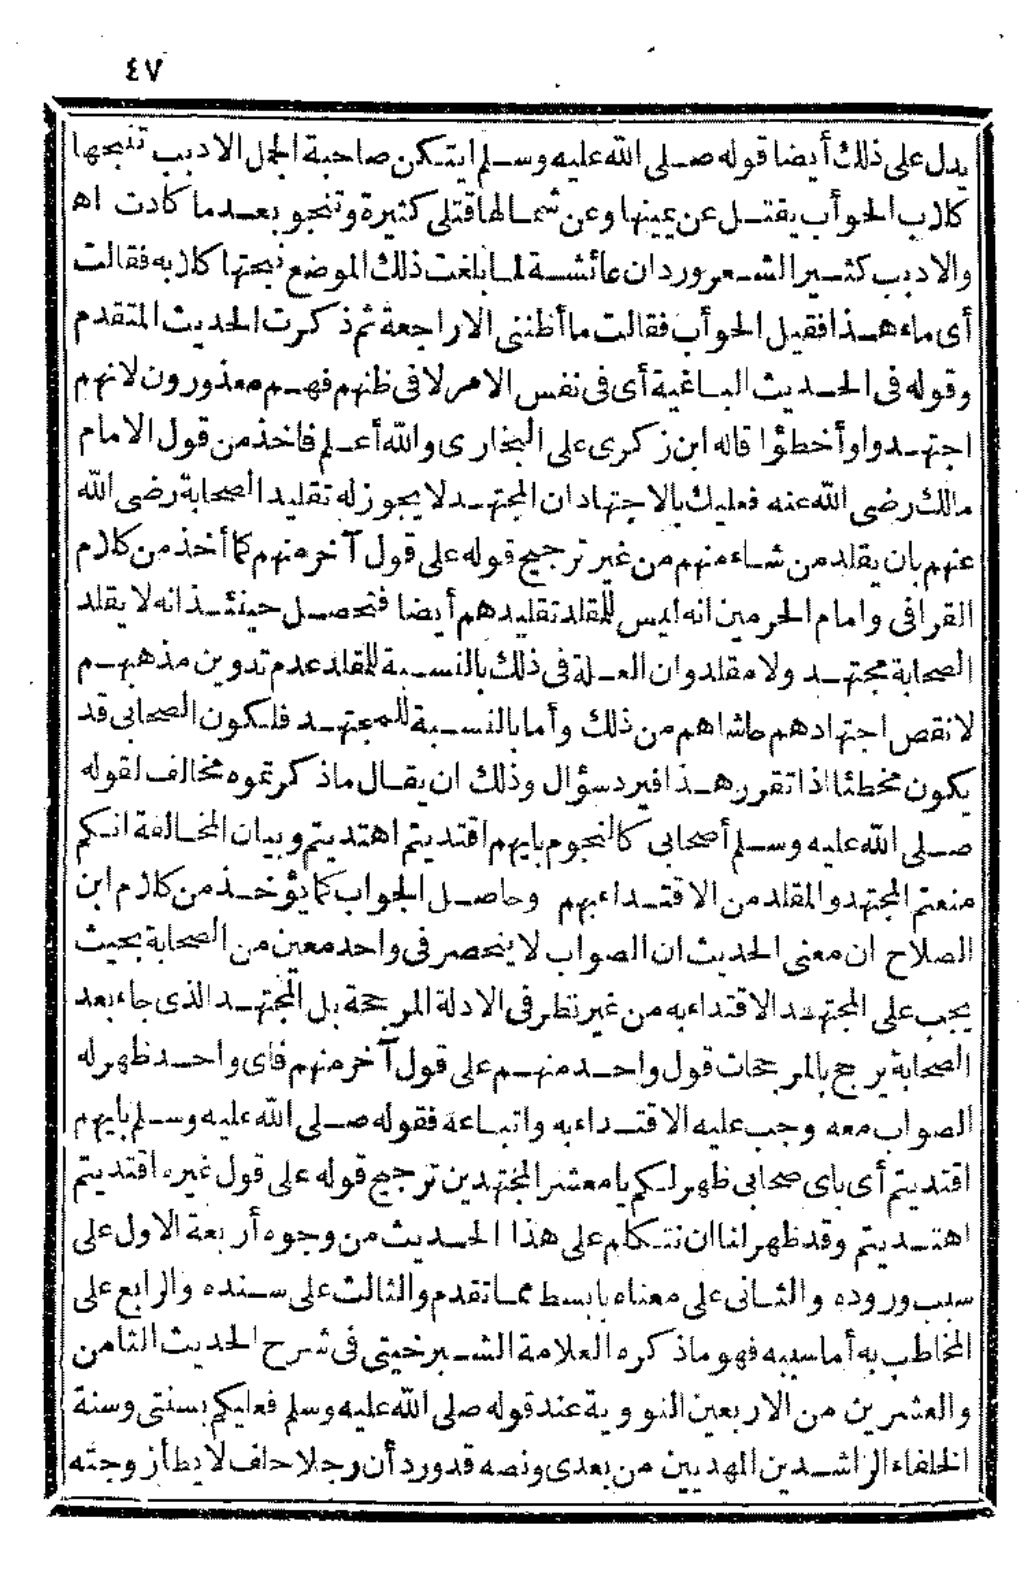 ٤٧
يدل على ذلك أيضا قوله صلى الله عليه وسلم ايتكن صاحبة الجمل الادبب تنبحها
كلاب الحوأب يقتل عن يمينها وعن شمالها قتلى كثيرة وتنجو بعد ما كادت اه
والادبب كثير الشعر ورد ان عائشة لما بلغت ذلك الموضع نبحتها كلابه فقالت
أى ماء هذا فقيل الحوأب فقالت ما أظننى الا راجعة ثم ذكرت الحديث المتقدم
وقوله فى الحديث الباغية أى فى نفس الامر لا فى ظنهم فهم معذورون لانهم
اجتهدوا وأخطؤا قاله ابن زكرى على البخارى والله أعلم فاخذ من قول الامام
مالك رضى الله عنه فعليك بالاجتهاد ان المجتهد لا يجوز له تقليد الصحابة رضى الله
عنهم بان يقلد من شاء منهم من غير ترجيح قوله على قول آخر منهم كما أخذ من كلام
القرافى وامام الحرمين انه ليس للمقلد تقليدهم أيضا فتحصل حينئذ انه لا يقلد
الصحابة مجتهد ولا مقلد وان العلة فى ذلك بالنسبة للمقلد عدم تدوين مذهبهم
لا نقص اجتهادهم حاشاهم من ذلك وأما بالنسبة للمجتهد فلكون الصحابى قد
يكون مخطئا اذا تقرر هذا فيرد سؤال وذلك ان يقال ما ذكرتموه مخالف لقوله
صلى الله عليه وسلم أصحابى كالنجوم بايهم اقتديتم اهتديتم وبيان المخالفة انكم
منعتم المجتهد والمقلد من الاقتداء بهم وحاصل الجواب كما يؤخذ من كلام ابن
الصلاح ان معنى الحديث ان الصواب لا ينحصر فى واحد معين من الصحابة بحيث
يجب على المجتهد الاقتداء به من غير نظر فى الادلة المرجحة بل المجتهد الذى جاء بعد
الصحابة يرجح بالمرجحات قول واحد منهم على قول آخر منهم فاى واحد ظهر له
الصواب معه وجب عليه الاقتداء به واتباعه فقوله صلى الله عليه وسلم بايهم
اقتديتم أى باى صحابى ظهر لكم يا معشر المجتهدين ترجيح قوله على قول غيره اقتديتم
اهتديتم وقد ظهر لنا ان نتكلم على هذا الحديث من وجوه أربعة الاول على
سبب وروده والثانى على معناه بابسط مما تقدم والثالث على سنده والرابع على
المخاطب به أما سببه فهو ما ذكره العلامة الشبرخيتى فى شرح الحديث الثامن
والعشرين من الاربعين النووية عند قوله صلى الله عليه وسلم فعليكم بسنتى وسنة
الخلفاء الراشدين المهديين من بعدى ونصه قد ورد أن رجلا حلف لا يطأ زوجته